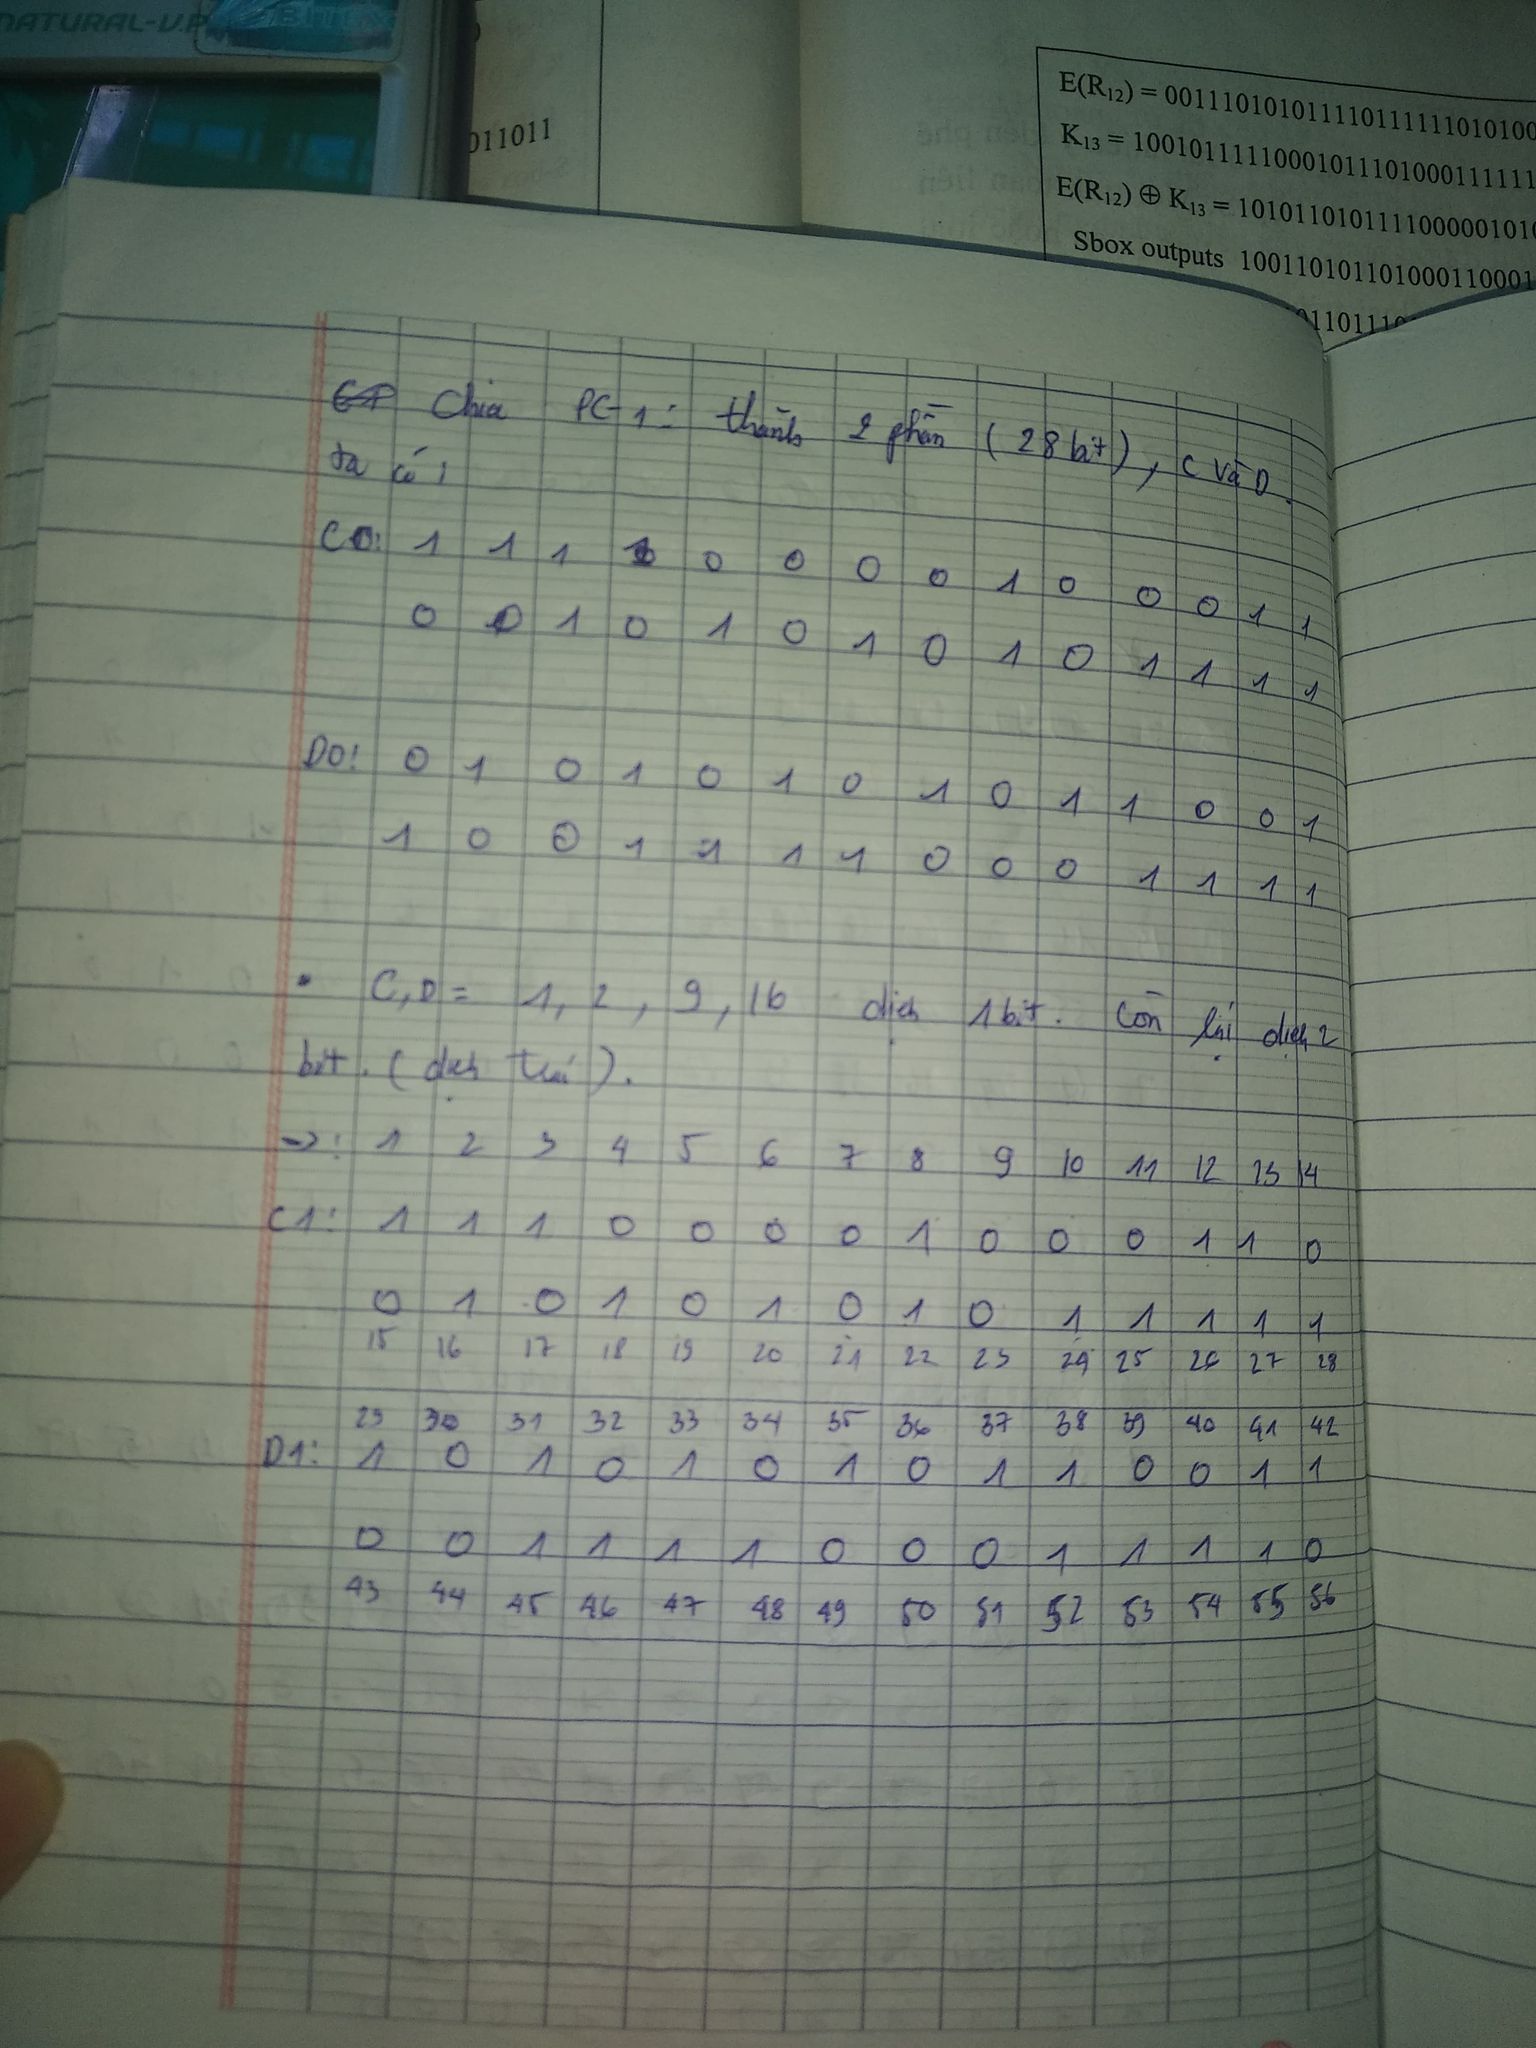 NATURAL-V.P
011011
E(R₁₂) = 00111010101111011111101010100
K₁₃ = 10010111110001011101000111111
E(R₁₂) ⊕ K₁₃ = 10101101011110000010101
Sbox outputs 10011010110100011000 1
Chia PC-1: thành 2 phần (28 bit), C và D.
ta có:
C0: 1 1 1 1 0 0 0 0 1 0 0 0 1 1
0 0 1 0 1 0 1 0 1 0 1 1 1 1
D0: 0 1 0 1 0 1 0 1 0 1 1 0 0 1
1 0 0 1 1 1 1 0 0 0 1 1 1 1
• C, D = 1, 2, 9, 16 dịch 1 bit. Còn lại dịch 2
bit. (dịch trái).
->: 1 2 3 4 5 6 7 8 9 10 11 12 13 14
C1: 1 1 1 0 0 0 0 1 0 0 0 1 1 0
0 1 0 1 0 1 0 1 0 1 1 1 1 1
15 16 17 18 19 20 21 22 23 24 25 26 27 28
29 30 31 32 33 34 35 36 37 38 39 40 41 42
D1: 1 0 1 0 1 0 1 0 1 1 0 0 1 1
0 0 1 1 1 1 0 0 0 1 1 1 1 0
43 44 45 46 47 48 49 50 51 52 53 54 55 56